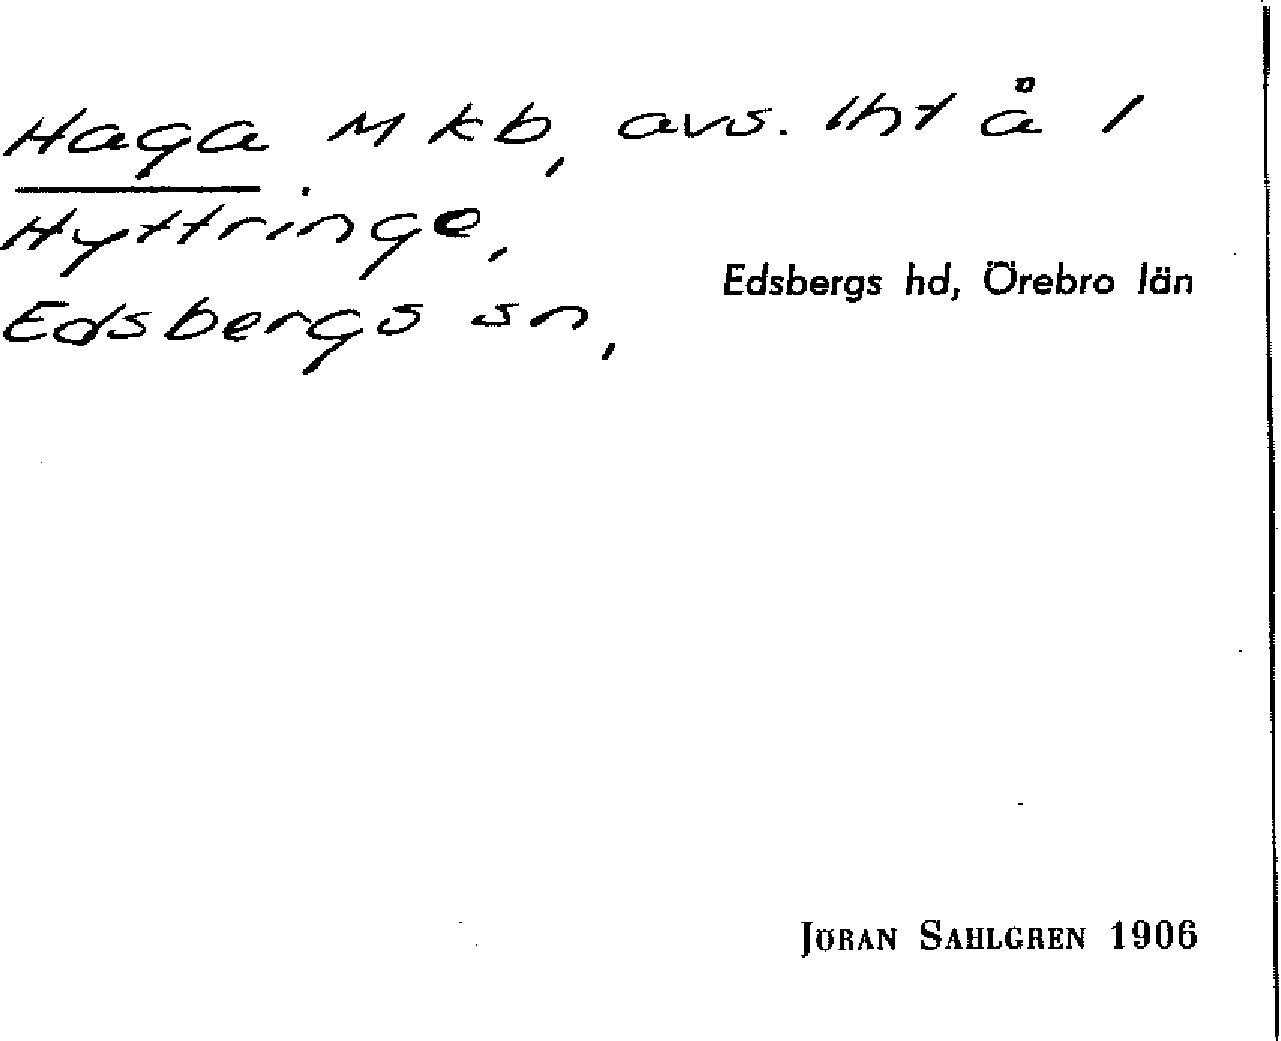 Haga M kb, avs. lht å 1
Hyttringe,
Edsbergs sn,
Edsbergs hd, Örebro län
JÖRAN SAHLGREN 1906